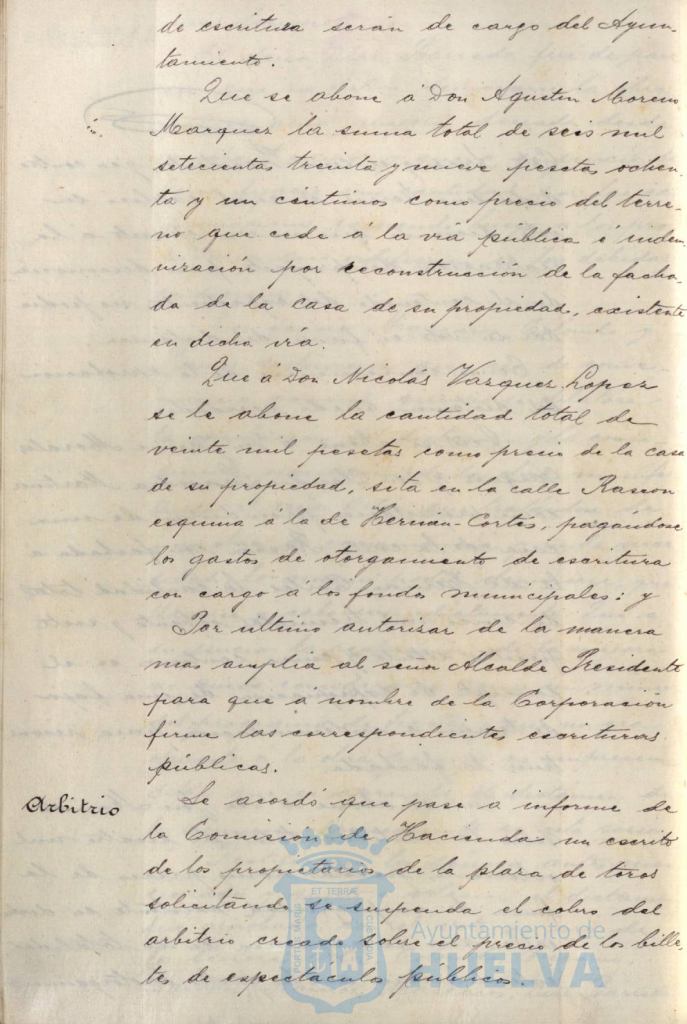 de escritura serán de cargo del Ayun-
tamiento.
Que se abone á Don Agustin Moreno
Marquez la suma total de seis mil
setecientas treinta y nueve pesetas ochen-
ta y un céntimos como precio del terre-
no que cede á la vía pública é indem-
nización por reconstrucción de la facha-
da de la casa de su propiedad, existente
en dicha vía.
Que á Don Nicolás Vazquez Lopez
se le abone la cantidad total de
veinte mil pesetas como precio de la casa
de su propiedad, sita en la calle Rascon
esquina á la de Hernán-Cortés, pagándose
los gastos de otorgamiento de escritura
con cargo á los fondos municipales: y
Por ultimo autorizar de la manera
mas amplia al señor Alcalde Presidente
para que á nombre de la Corporación
firme las correspondientes escrituras
públicas.
Arbitrio
Se acordó que pase á informe de
la Comisión de Hacienda un escrito
de los propietarios de la plaza de toros
solicitando se suspenda el cobro del
arbitrio creado sobre el precio de los bille-
tes de espectáculos públicos.
Ayuntamiento de
HUELVA